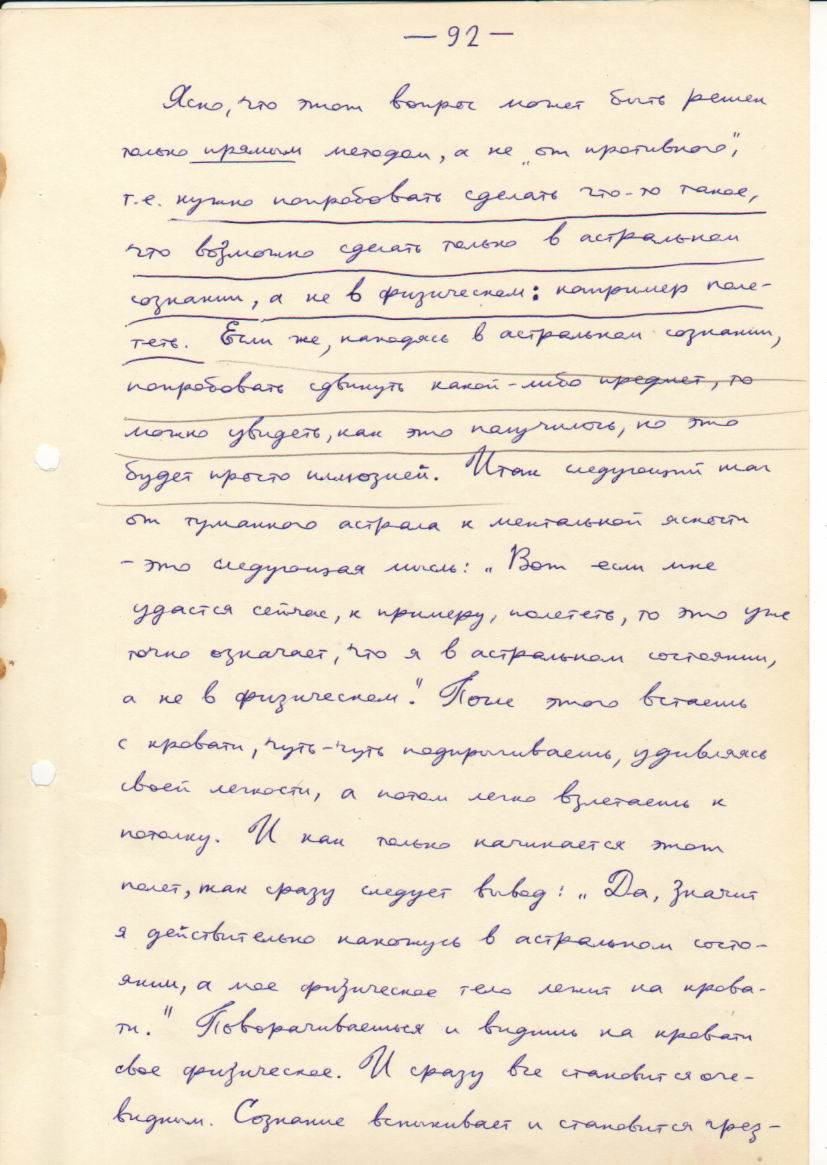 — 92 —
Ясно, что этот вопрос может быть решен
только прямым методом, а не „от противного",
т.е. нужно попробовать сделать что-то такое,
что возможно сделать только в астральном
сознании, а не в физическом: например поле-
теть. Если же, находясь в астральном сознании,
попробовать сдвинуть какой-либо предмет, то
можно увидеть, как это получилось, но это
будет просто иллюзией. Итак следующий шаг
от туманного астрала к ментальной ясности
– это следующая мысль: „Вот если мне
удастся сейчас, к примеру, полететь, то это уже
точно означает, что я в астральном состоянии,
а не в физическом." После этого встаешь
с кровати, чуть-чуть подпрыгиваешь, удивляясь
своей легкости, а потом легко взлетаешь к
потолку. И как только начинается этот
полет, так сразу следует вывод: „Да, значит
я действительно нахожусь в астральном состо-
янии, а мое физическое тело лежит на крова-
ти." Поворачиваешься и видишь на кровати
свое физическое. И сразу все становится оче-
видным. Сознание вспыхивает и становится чрез-